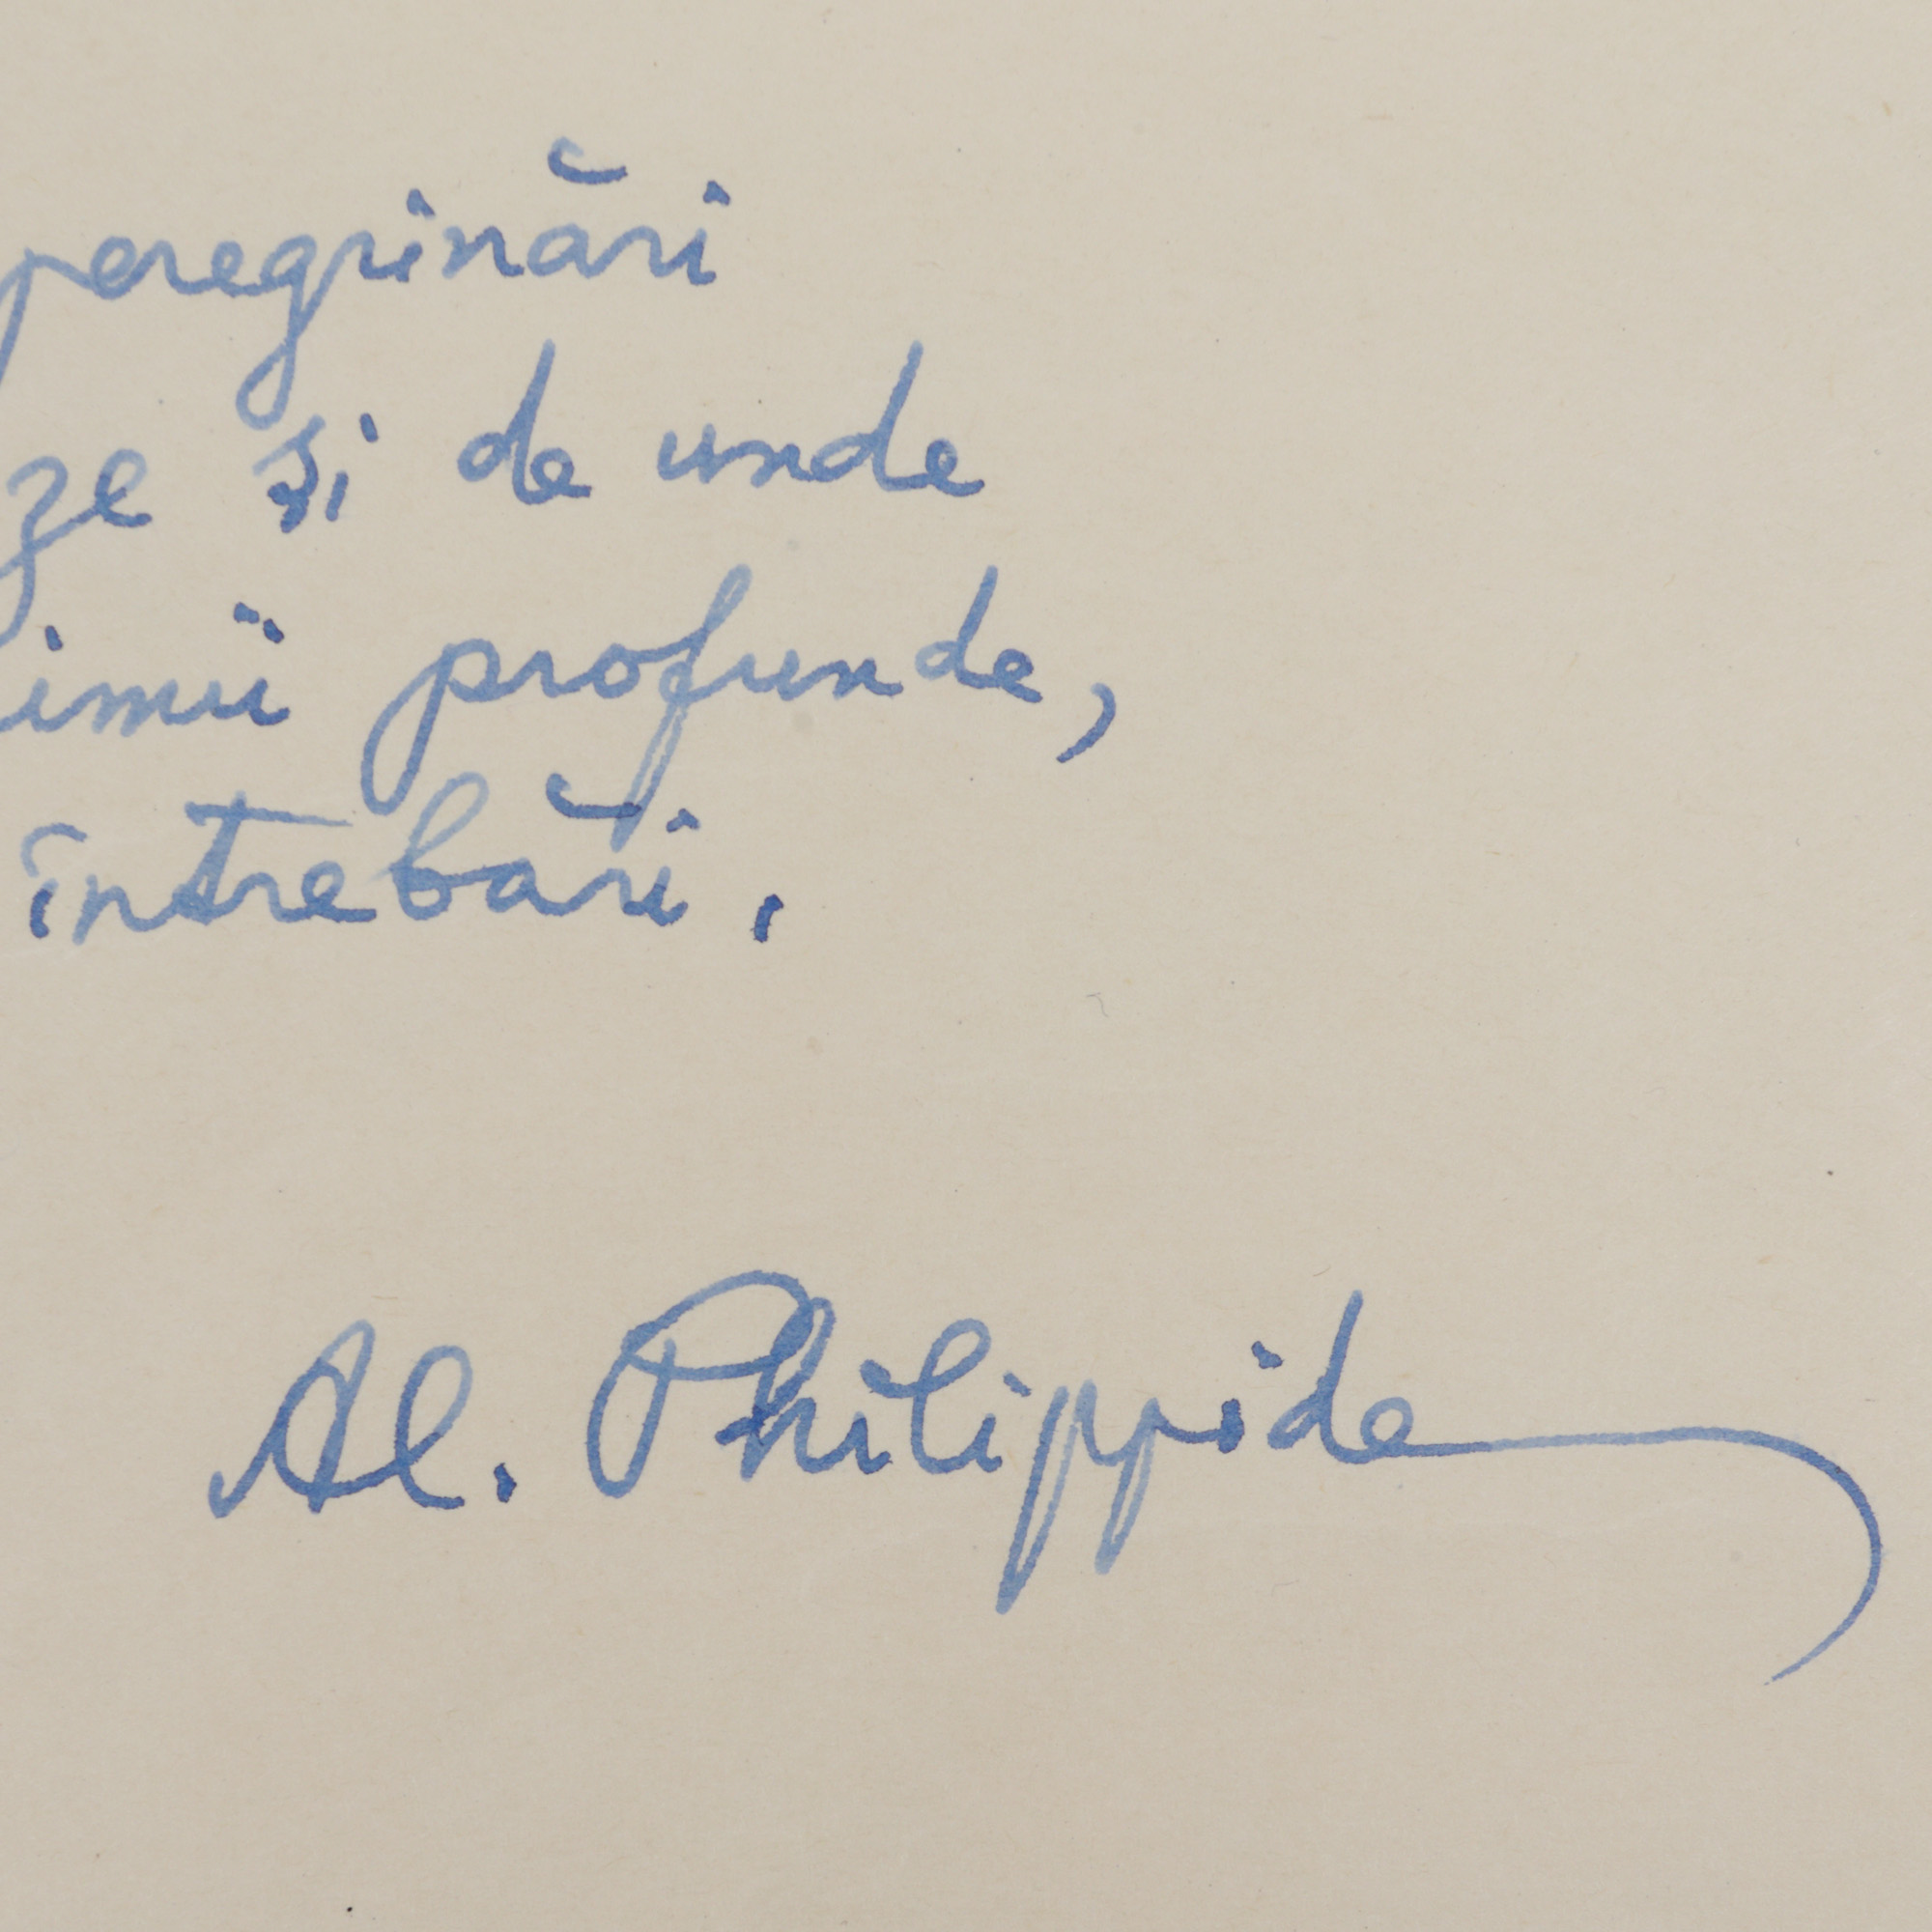 peregrinări
ze și de unde
imii profunde,
întrebări.
Al. Philippide